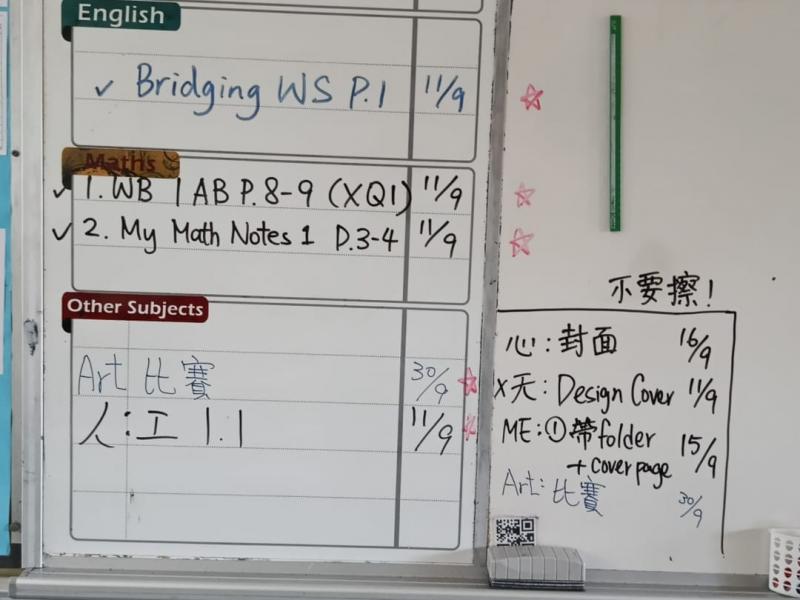 English
✓ Bridging WS P.1 11/9
Maths
✓ 1. WB 1AB P.8-9 (XQ1) 11/9
✓ 2. My Math Notes 1 P.3-4 11/9
Other Subjects
Art 比賽 30/9
人:工 1.1 11/9
不要擦!
心:封面 16/9
X天:Design Cover 11/9
ME:①帶folder
+ cover page 15/9
Art:比賽 30/9